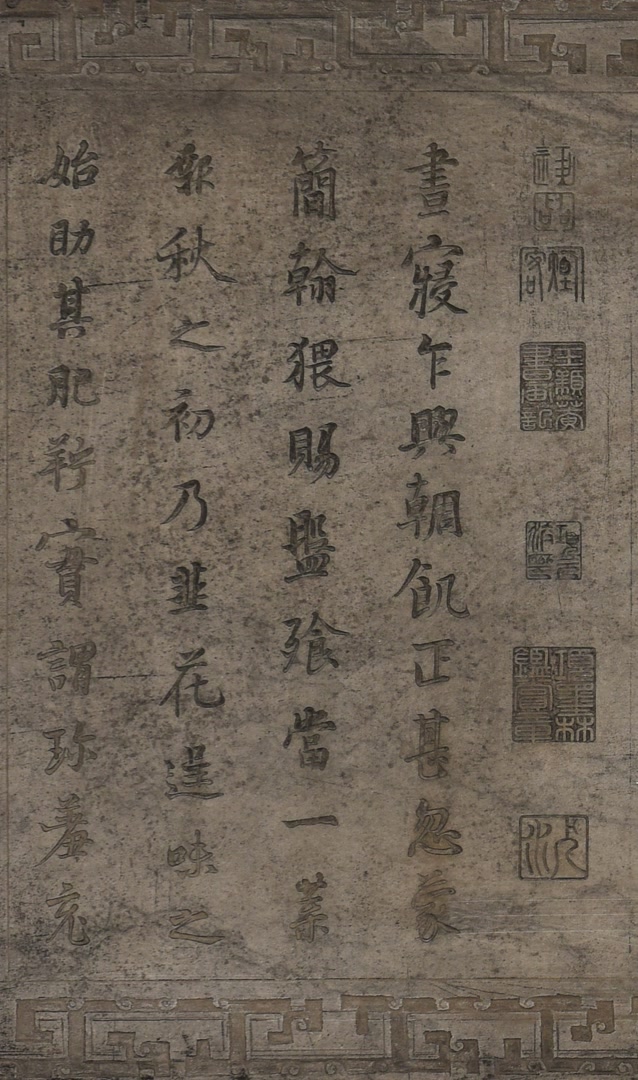 項墨林鑑賞章
晝寢乍興輖飢正甚忽蒙
簡翰猥賜盤飧當一葉
報秋之初乃韭花逞味之
始助其肥羜實謂珍羞充